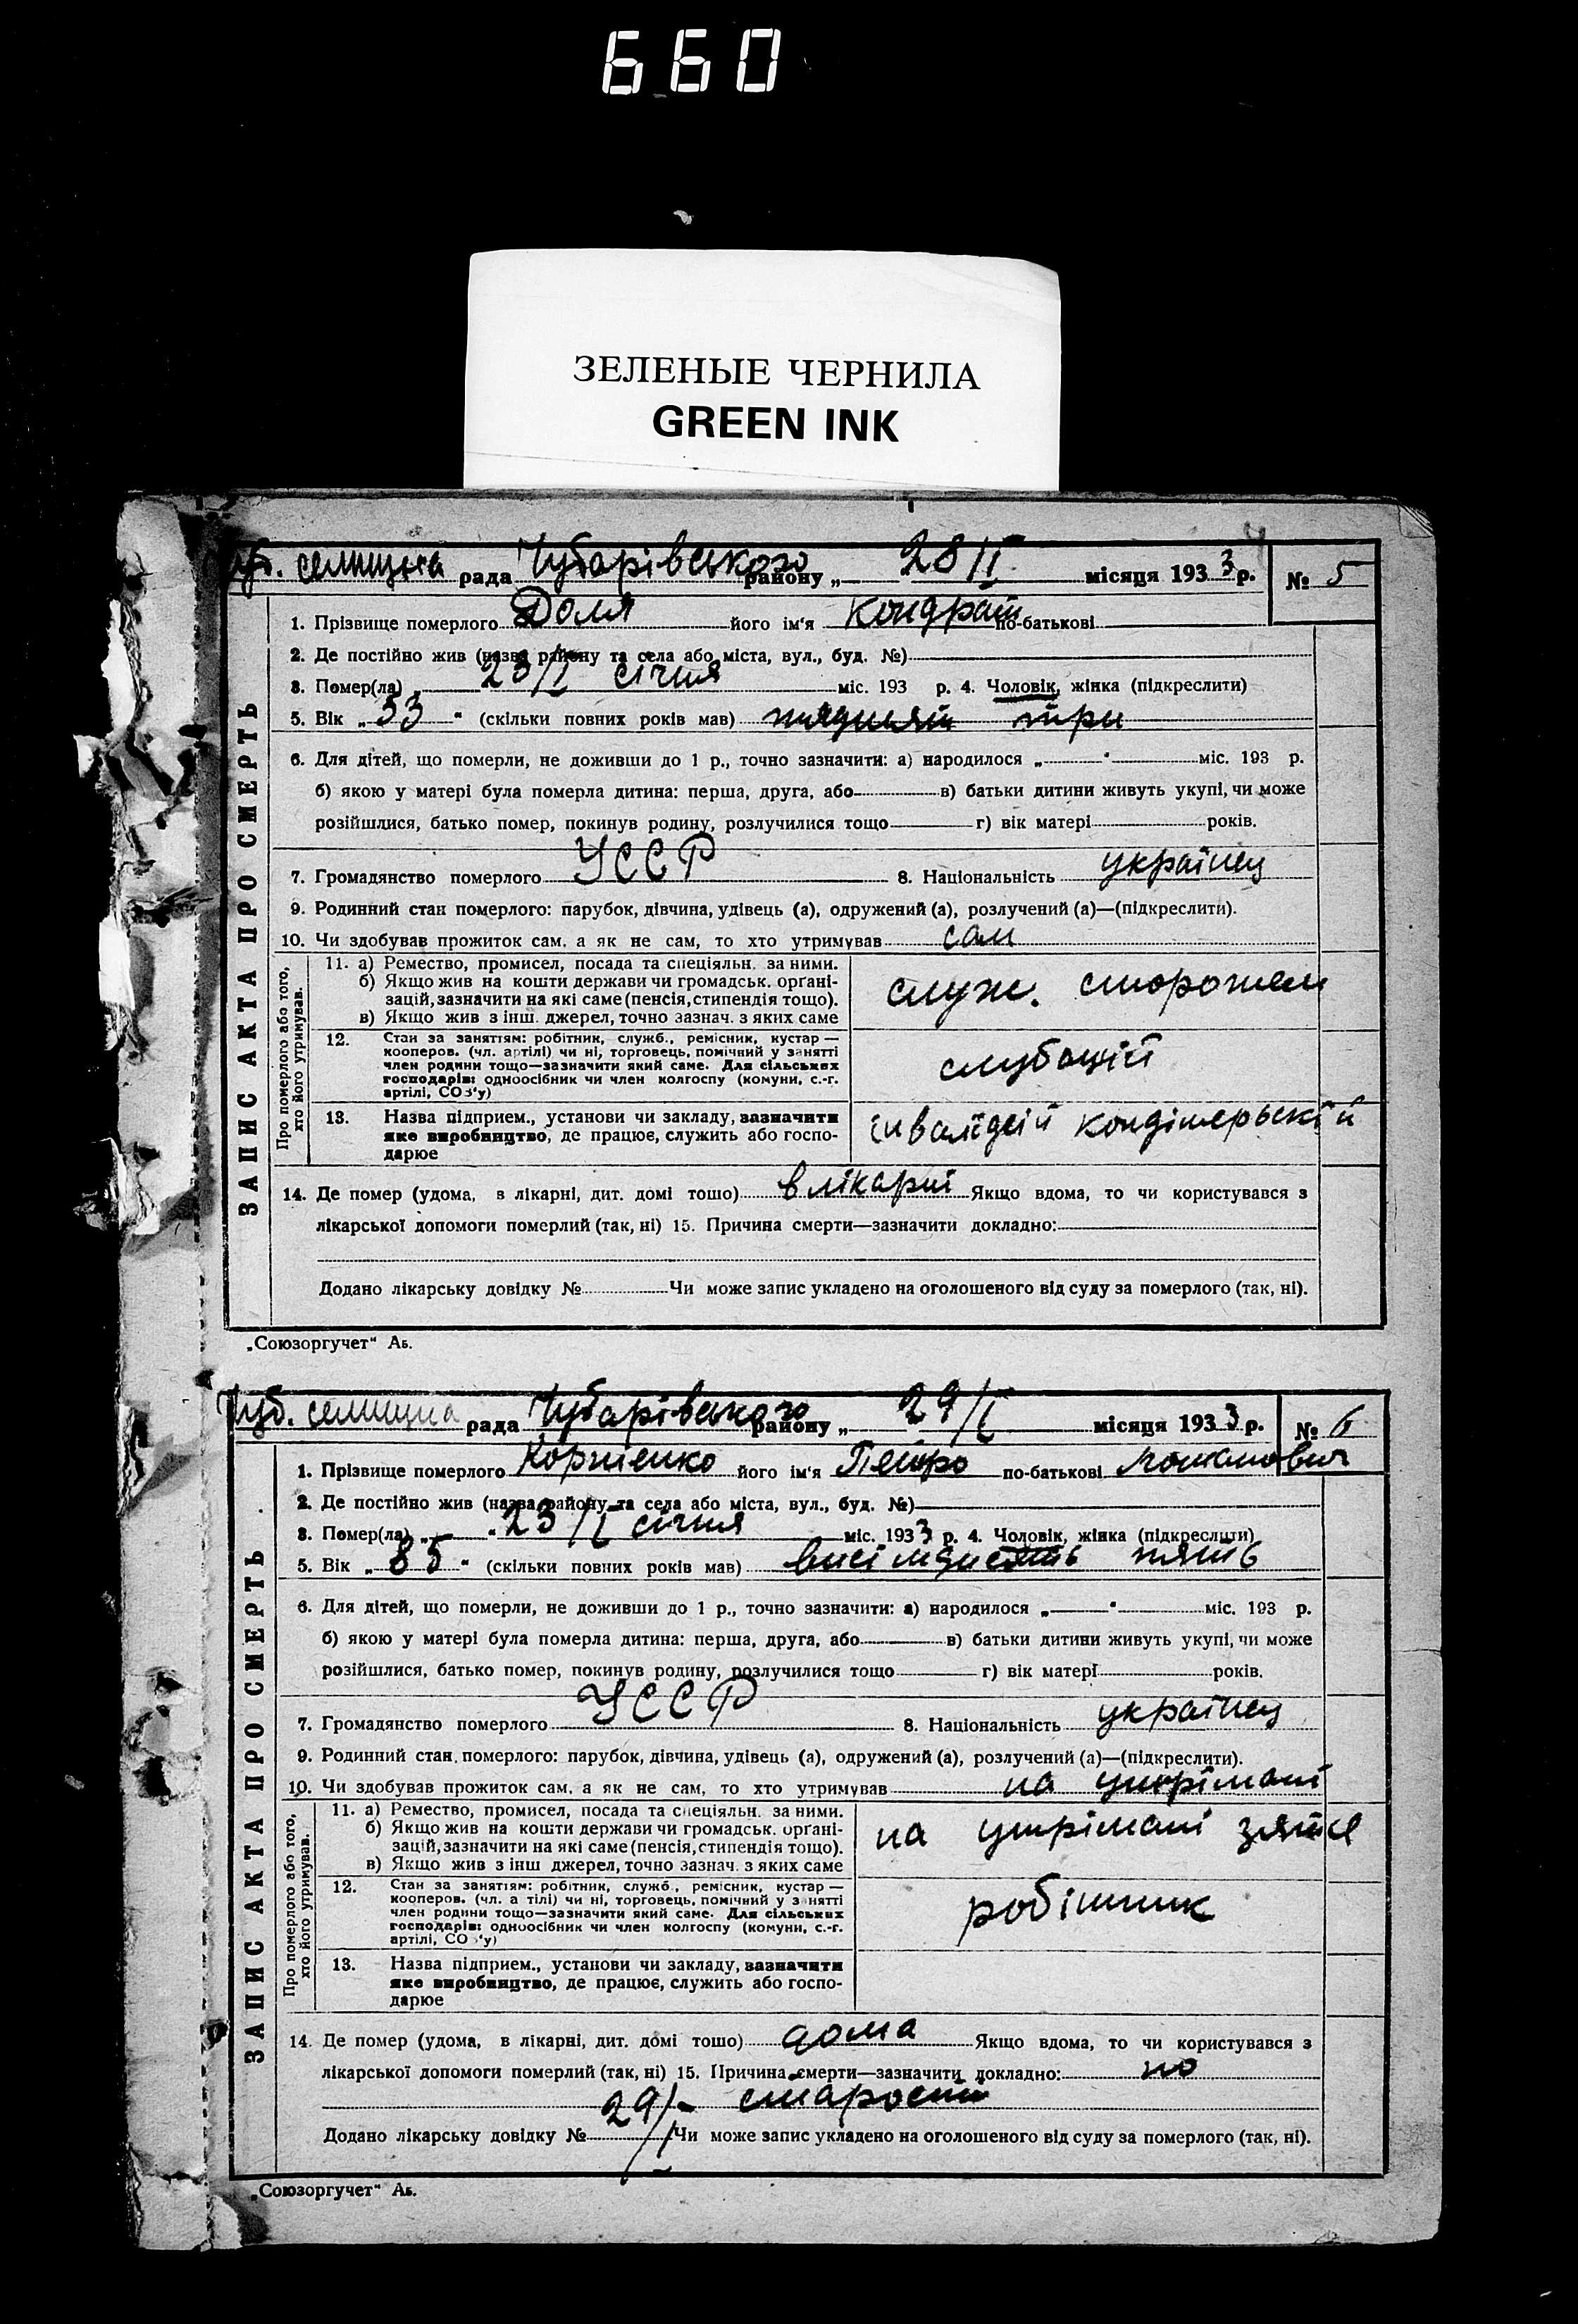 660
ЗЕЛЕНЫЕ ЧЕРНИЛА
GREEN INK
Чуб. селищна рада Чубарівського району „ 28/I місяця 1933 р. № 5
ЗАПИС АКТА ПРО СМЕРТЬ
1. Прізвище померлого Доля його ім'я Кондрат по-батькові
2. Де постійно жив (назва району та села або міста, вул., буд. №)
3. Помер(ла) „ 23/I січня міс. 193 р. 4. Чоловік, жінка (підкреслити)
5. Вік „33“ (скільки повних років мав) три
6. Для дітей, що померли, не доживши до 1 р., точно зазначити: а) народилося „ “ міс. 193 р.
б) якою у матері була померла дитина: перша, друга, або в) батьки дитини живуть укупі, чи може
розійшлися, батько помер, покинув родину, розлучилися тощо г) вік матері років.
7. Громадянство померлого УССР 8. Національність українец
9. Родинний стан померлого: парубок, дівчина, удівець (а), одружений (а), розлучений (а)—(підкреслити).
10. Чи здобував прожиток сам, а як не сам, то хто утримував сам
Про померлого або того, хто його утримував.
11. а) Ремество, промисел, посада та спеціяльн. за ними.
б) Якщо жив на кошти держави чи громадськ. органі-
зацій, зазначити на які саме (пенсія, стипендія тощо).
в) Якщо жив з інш. джерел, точно зазнач. з яких саме
служ. сторожем
12. Стан за заняттям: робітник, служб., ремісник, кустар —
кооперов. (чл. артілі) чи ні, торговець, помічний у занятті
член родини тощо—зазначити який саме. Для сільських
господарів: одноосібник чи член колгоспу (комуни, с.-г.
артілі, СОЗ'у)
13. Назва підприєм., установи чи закладу, зазначити
яке виробництво, де працює, служить або госпо-
дарює
14. Де помер (удома, в лікарні, дит. домі тощо) в лікарні Якщо вдома, то чи користувався з
лікарської допомоги померлий (так, ні) 15. Причина смерти—зазначити докладно:
Додано лікарську довідку № Чи може запис укладено на оголошеного від суду за померлого (так, ні).
„Союзоргучет“ Аь.
Чуб. селищна рада Чубарівського району „ 29/I місяця 1933 р. № 6
ЗАПИС АКТА ПРО СМЕРТЬ
1. Прізвище померлого Корнієнко його ім'я Петро по-батькові
2. Де постійно жив (назва району та села або міста, вул., буд. №)
3. Помер(ла) „ “ 23/I січня міс. 1933 р. 4. Чоловік, жінка (підкреслити)
5. Вік „85“ (скільки повних років мав) висімдисять пять
6. Для дітей, що померли, не доживши до 1 р., точно зазначити: а) народилося „ “ міс. 193 р.
б) якою у матері була померла дитина: перша, друга, або в) батьки дитини живуть укупі, чи може
розійшлися, батько помер, покинув родину, розлучилися тощо г) вік матері років.
7. Громадянство померлого УССР 8. Національність українец
9. Родинний стан померлого: парубок, дівчина, удівець (а), одружений (а), розлучений (а)—(підкреслити).
10. Чи здобував прожиток сам, а як не сам, то хто утримував на утрімані
Про померлого або того, хто його утримував.
11. а) Ремество, промисел, посада та спеціяльн. за ними.
б) Якщо жив на кошти держави чи громадськ. органі-
зацій, зазначити на які саме (пенсія, стипендія тощо).
в) Якщо жив з інш джерел, точно зазнач. з яких саме
на утрімані зятя
12. Стан за заняттям: робітник, служб., ремісник, кустар —
кооперов. (чл. а тілі) чи ні, торговець, помічний у занятті
член родини тощо—зазначити який саме. Для сільських
господарів: одноосібник чи член колгоспу (комуни, с.-г.
артілі, СОЗ'у)
робітник
13. Назва підприєм., установи чи закладу, зазначити
яке виробництво, де працює, служить або госпо-
дарює
14. Де помер (удома, в лікарні, дит. домі тощо) дома Якщо вдома, то чи користувався з
лікарської допомоги померлий (так, ні) 15. Причина смерти—зазначити докладно: по
старости
Додано лікарську довідку № 29/I Чи може запис укладено на оголошеного від суду за померлого (так, ні).
„Союзоргучет“ Аь.